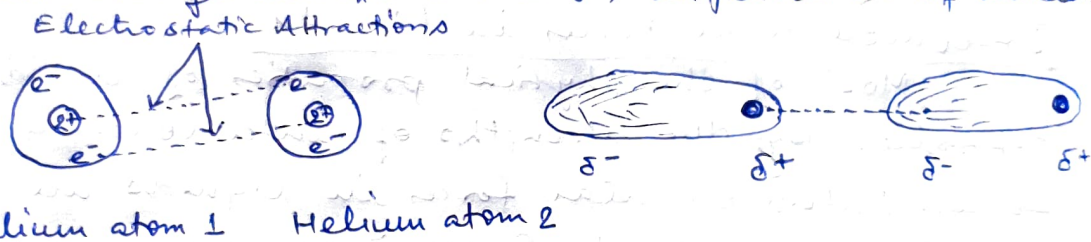 Electrostatic Attractions
e⁻ e⁻
2+ 2+
e⁻ e⁻
δ⁻ δ+ δ- δ+
lium atom 1 Helium atom 2